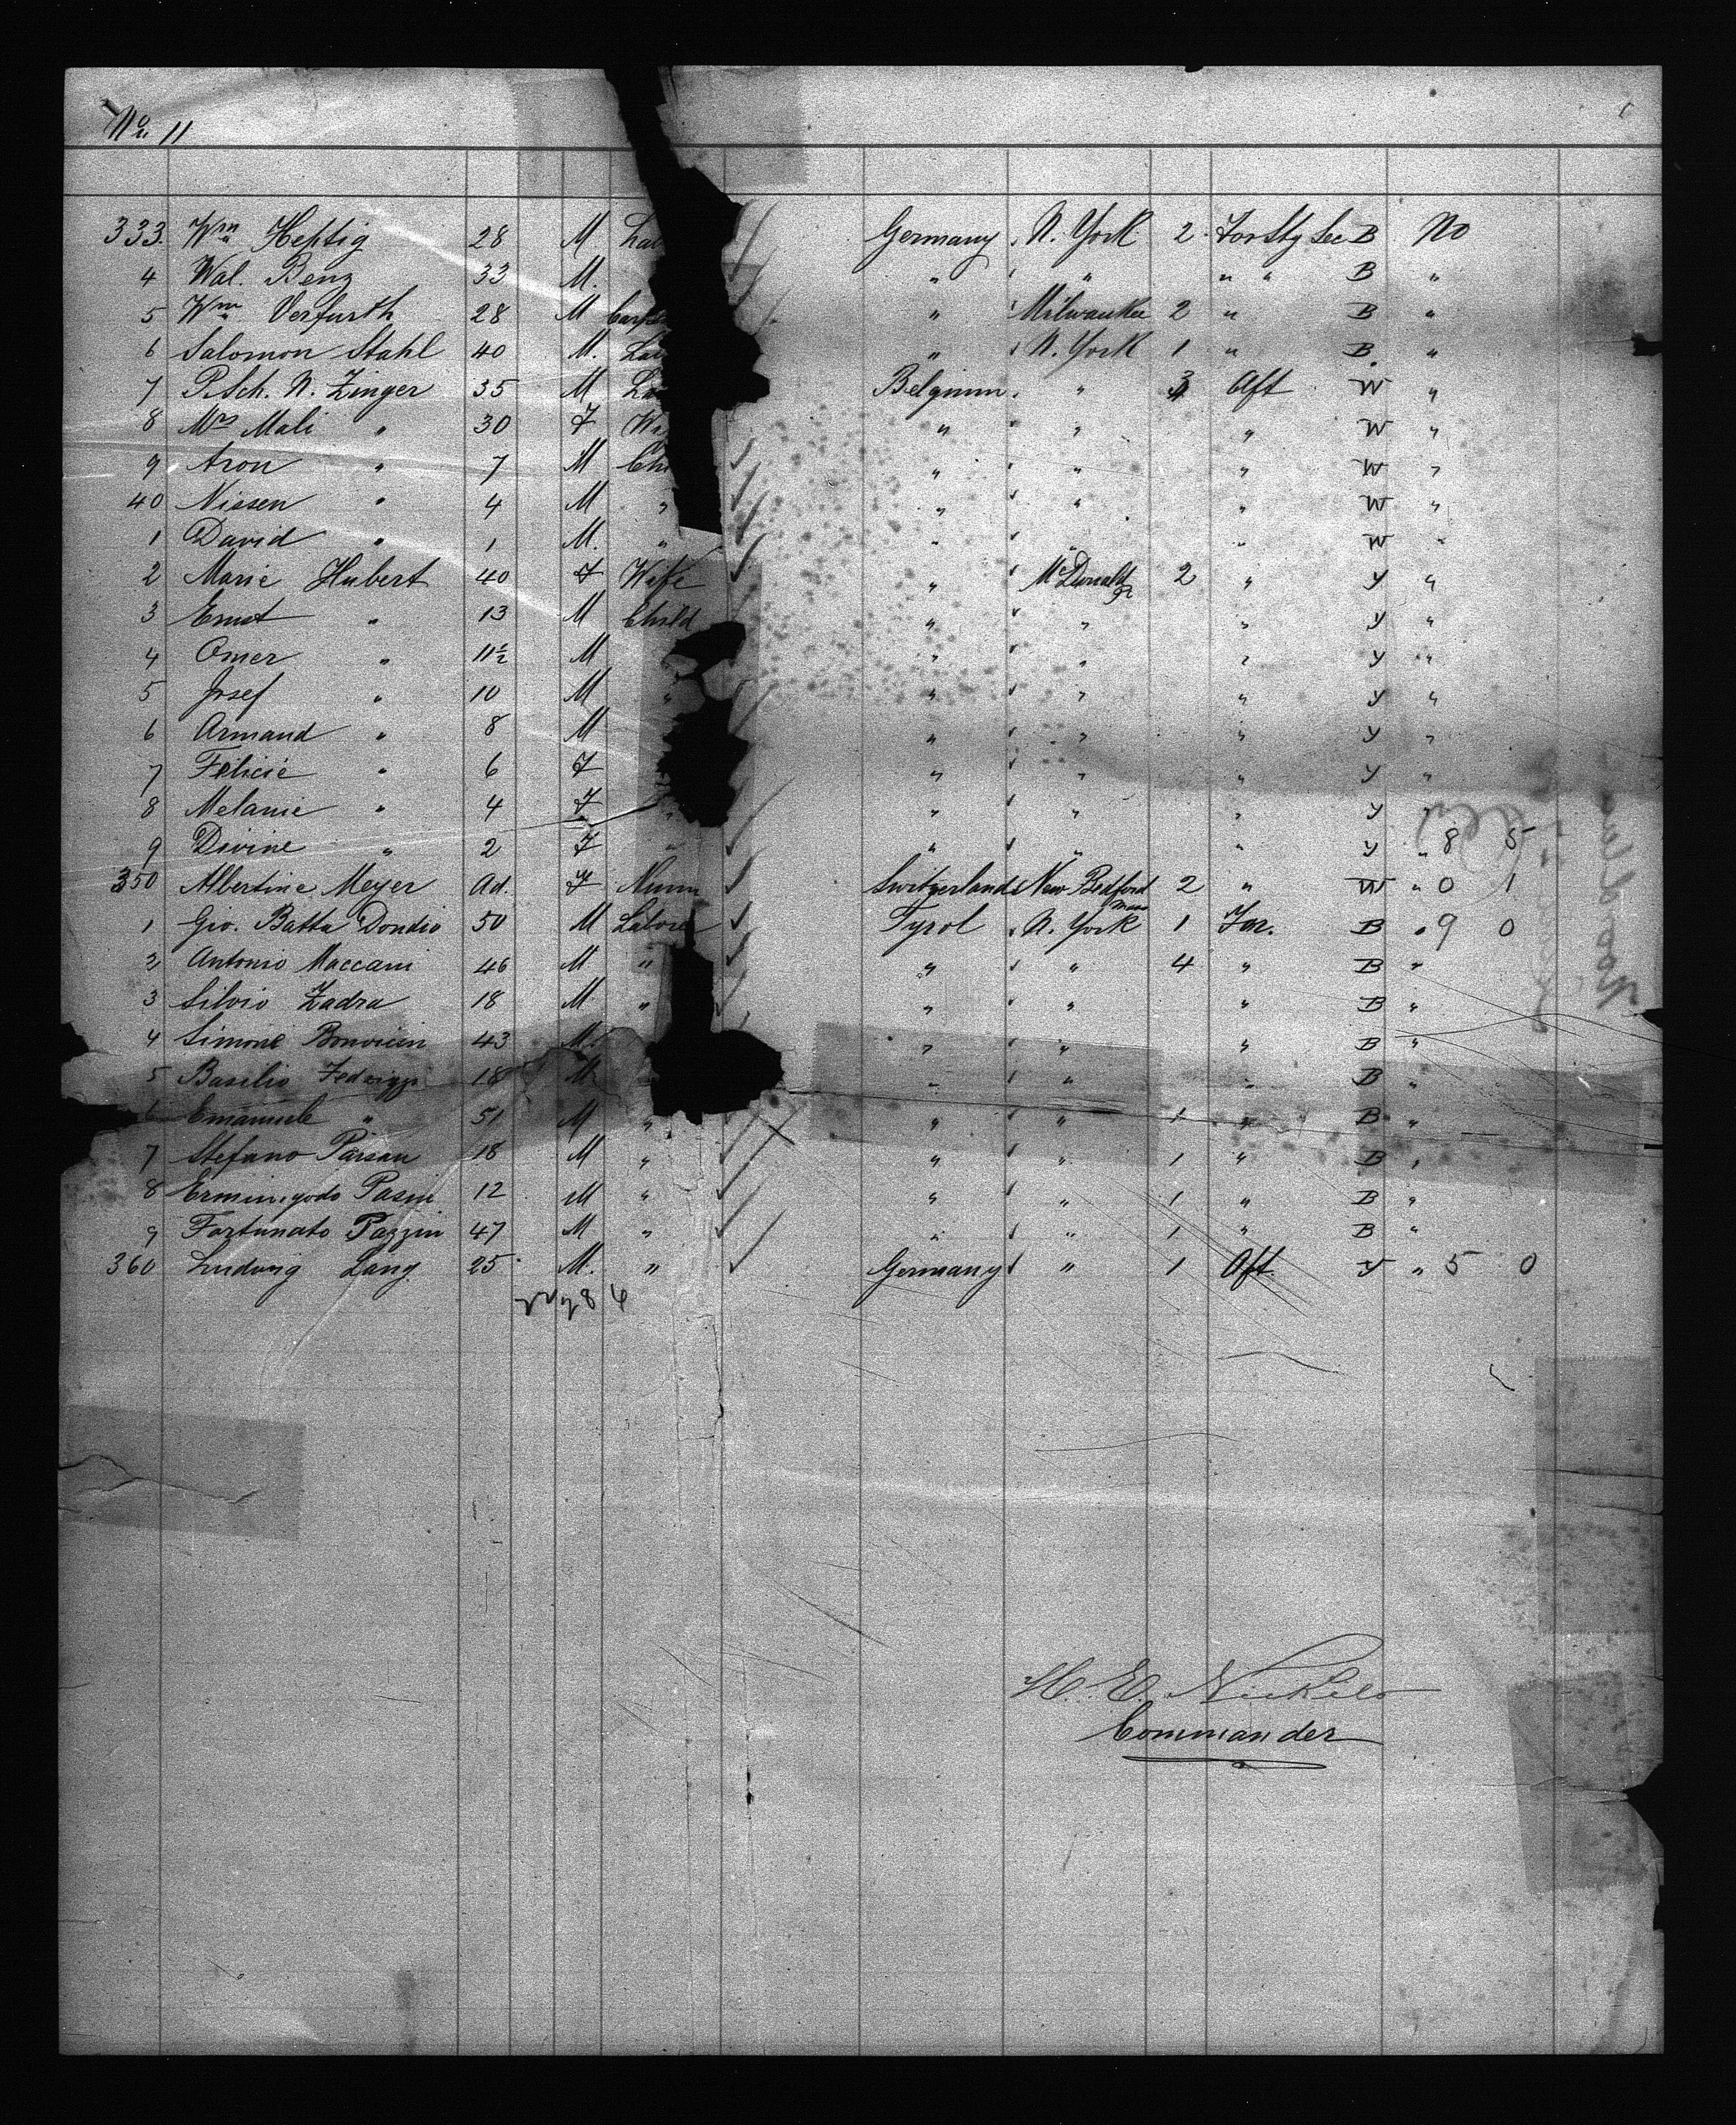 No. 11
333. Wm Heftig 28 M Lab Germany N. York 2 For Stg Sec B No
4 Wal. Benz 33 M. " " " " B "
5 Wm Verfurth 28 M Carp " Milwaukee 2 " B "
6 Salomon Stahl 40 M. Lab " N. York 1 " B "
7 P. Sch. N. Zinger 35 M La Belgium " 3 Aft W "
8 Mrs Mali " 30 F Wi " " " W "
9 Aron " 7 M Chi " " " W "
40 Nissen " 4 M " " " " W "
1 David " 1 M. " " " " W "
2 Marie Hubert 40 F Wife " McDonald Pa 2 " Y "
3 Ernst " 13 M Child " " " Y "
4 Omer " 11½ M " " " Y "
5 Josef " 10 M " " " " Y "
6 Armand " 8 M " " " Y "
7 Felicie " 6 F " " " Y "
8 Melanie " 4 F " " " " Y "
9 Divine " 2 F " " " " Y " 8 5
350 Albertine Meyer Ad. F Nunn Switzerland New Bedford Mass 2 " W " 0 1
1 Gio. Batta Dondio 50 M Laborer Tyrol N. York 1 For. B " 9 0
2 Antonio Maccani 46 M " " " 4 " B "
3 Silvio Zadra 18 M " " " " B "
4 Simone 43 M. " " " B "
5 Basilio 18 M. " " " " B "
6 Emanuele " 51 M " " " 1 " B "
7 Stefano 18 M " " " 1 " B "
8 12 M " " " 1 " B "
9 Fortunato 47 M " " " 1 " B "
360 Ludwig Lang 25 M. " Germany " 1 Aft. Y " 5 0
H. E. Nickels
Commander